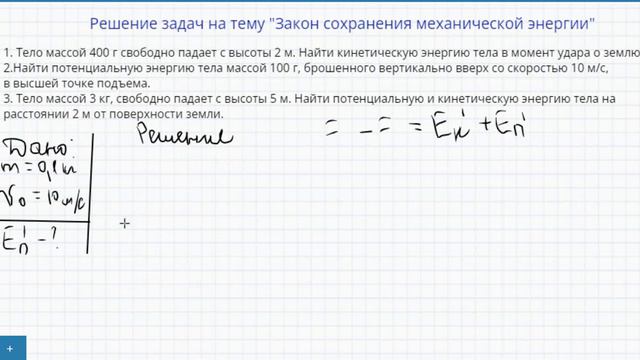 Решение задач на тему "Закон сохранения механической энергии"
1. Тело массой 400 г свободно падает с высоты 2 м. Найти кинетическую энергию тела в момент удара о землю
2.Найти потенциальную энергию тела массой 100 г, брошенного вертикально вверх со скоростью 10 м/с,
в высшей точке подъема.
3. Тело массой 3 кг, свободно падает с высоты 5 м. Найти потенциальную и кинетическую энергию тела на
расстоянии 2 м от поверхности земли.
= Eк' + Eп'
Решение
Дано:
m = 0,1 кг
v₀ = 10 м/с
Eп' - ?
+